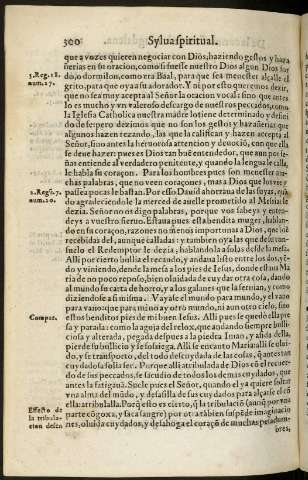 300 Sylua spiritual.
que a vozes quieren negociar con Dios, haziendo gestos y haza
ñerias en su oracion, como si fuesse nuestro Dios algun Dios sor
3. Reg. 18. do, o dormilon, como era Baal, para que sea menester alçalle el
num. 27. grito, para que oya a su adorador. Y ni por esso queremos dezir,
que no sea muy acepta al Señor la oracion vocal: sino que antes
lo es mucho y vn valeroso descargo de nuestros peccados, como
la Iglesia Catholica nuestra madre lo tiene determinado y defini
do: pero dezimos que no son los gestos y hazañerias que
algunos hazen rezando, las que la califican y hazen accepta al
Señor, sino antes la heruorosa attencion y deuoció, con que ella
se deue hazer: pues es Dios tan buē entendedor, que aun por se-
ñas entiende al verdadero penitente, y quando la lengua le calla,
le habla su coraçon. Para los hombres pues son menester mu-
chas palabras, que no veen coraçones, mas a Dios que los ve
2. Reg. 7. pocas le bastan. Por esso Dauid
num. 20. do agradeciendole la merced de auelle prometido al Messias le
dezia. Señor no os digo palabras, porque vos sabeys y enten-
deys a vuestro sieruo. Estaua pues esta bendita muger, hablan-
do en su coraçon, razones no menos importunas a Dios, que biē
recebidas del, aunque calladas: y tambien oya las que de st
el Redemptor le dezia, hablandola a solas desde la mesa.
Alli por cierto bullia el recaudo, y andaua listo entre los dos, yē-
do y viniendo, dende la mesa a los pies de Iesus, donde estaua Ma
ria de no poco reposo, bien oluidada de cuydar otra cosa, dando
al mundo su carta de horro, y a los galanes que la seruian, y como
diziendose a si misma. Vayase el mundo para mundo, y el vano
para vano: que para mi no ay otro mundo, ni aun otro cielo, sino
estos benditos pies de mi buen Iesus. Alli pues le quedó ella pre
Compar. sa y parada: como la aguja del relox, que andando siempre bulli-
ciosa y alterada, pegada despues a la piedra Iman, y asida della,
pierde su bullicio y se sossiega. Alli se encanto Maria: alli se olui-
do, y se transporto, del todo descuydada de las cosas, q̃ antes tan
cuydadosa solia ser. Porque alli arrebatada de Dios cō el recuer-
do de sus peccados, se sacudio de todos los demas cuydados, que
antes la fatigauā. Suele pues el Señor, quando el ya quiere soltar
vna alma del mūdo, y desasilla de sus cuydados para alçarse el cō
Effecto de ella: atribularla. Porq̃ esto es cierto, q̃ la tribulació (aunq̃ por vna
la tribula- parte cōgoxa, y saca sangre) por otra tābien suspēde imaginacio
cion desta nes, oluida cuydados, y desahoga el coraçō de muchas pesadum-
bres,